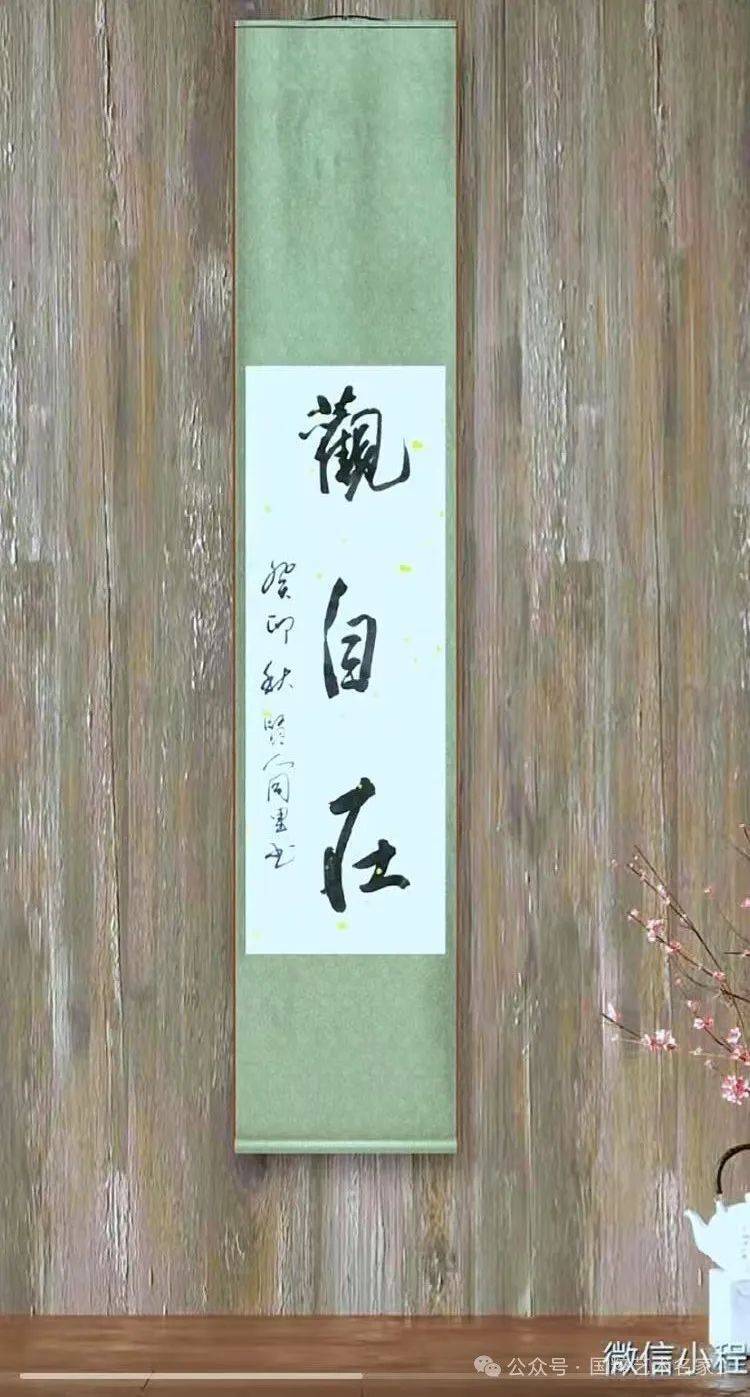 觀自在
癸卯秋賢人同里书
微信小程
公众号·国
名家